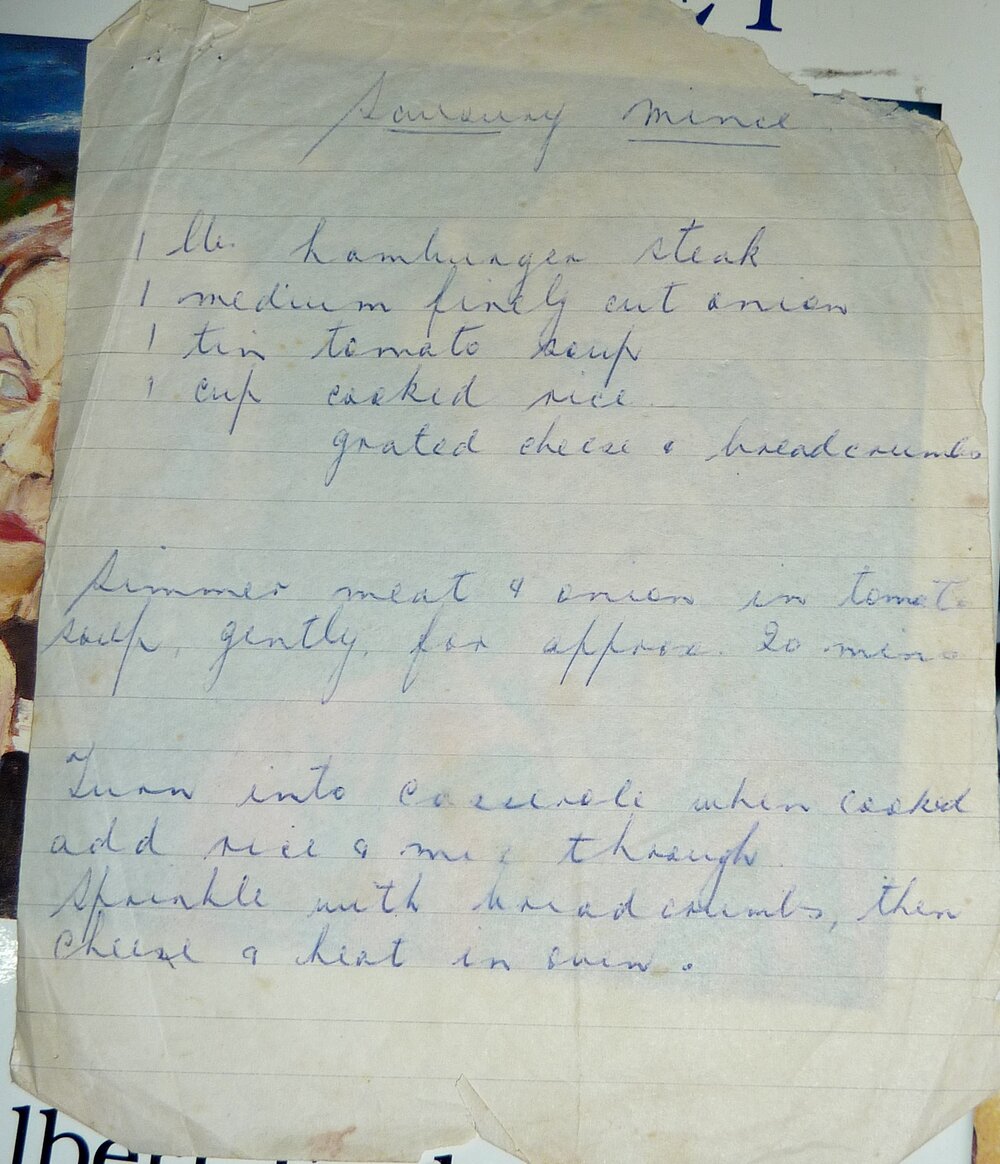 Savoury Mince
1 lb. hamburger steak
1 medium finely cut onion
1 tin tomato soup
1 cup cooked rice
grated cheese & breadcrumbs
Simmer meat & onion in tomato
soup, gently, for approx. 20 mins
Turn into casserole when cooked
add rice & mix through
Sprinkle with breadcrumbs, then
cheese & heat in oven.